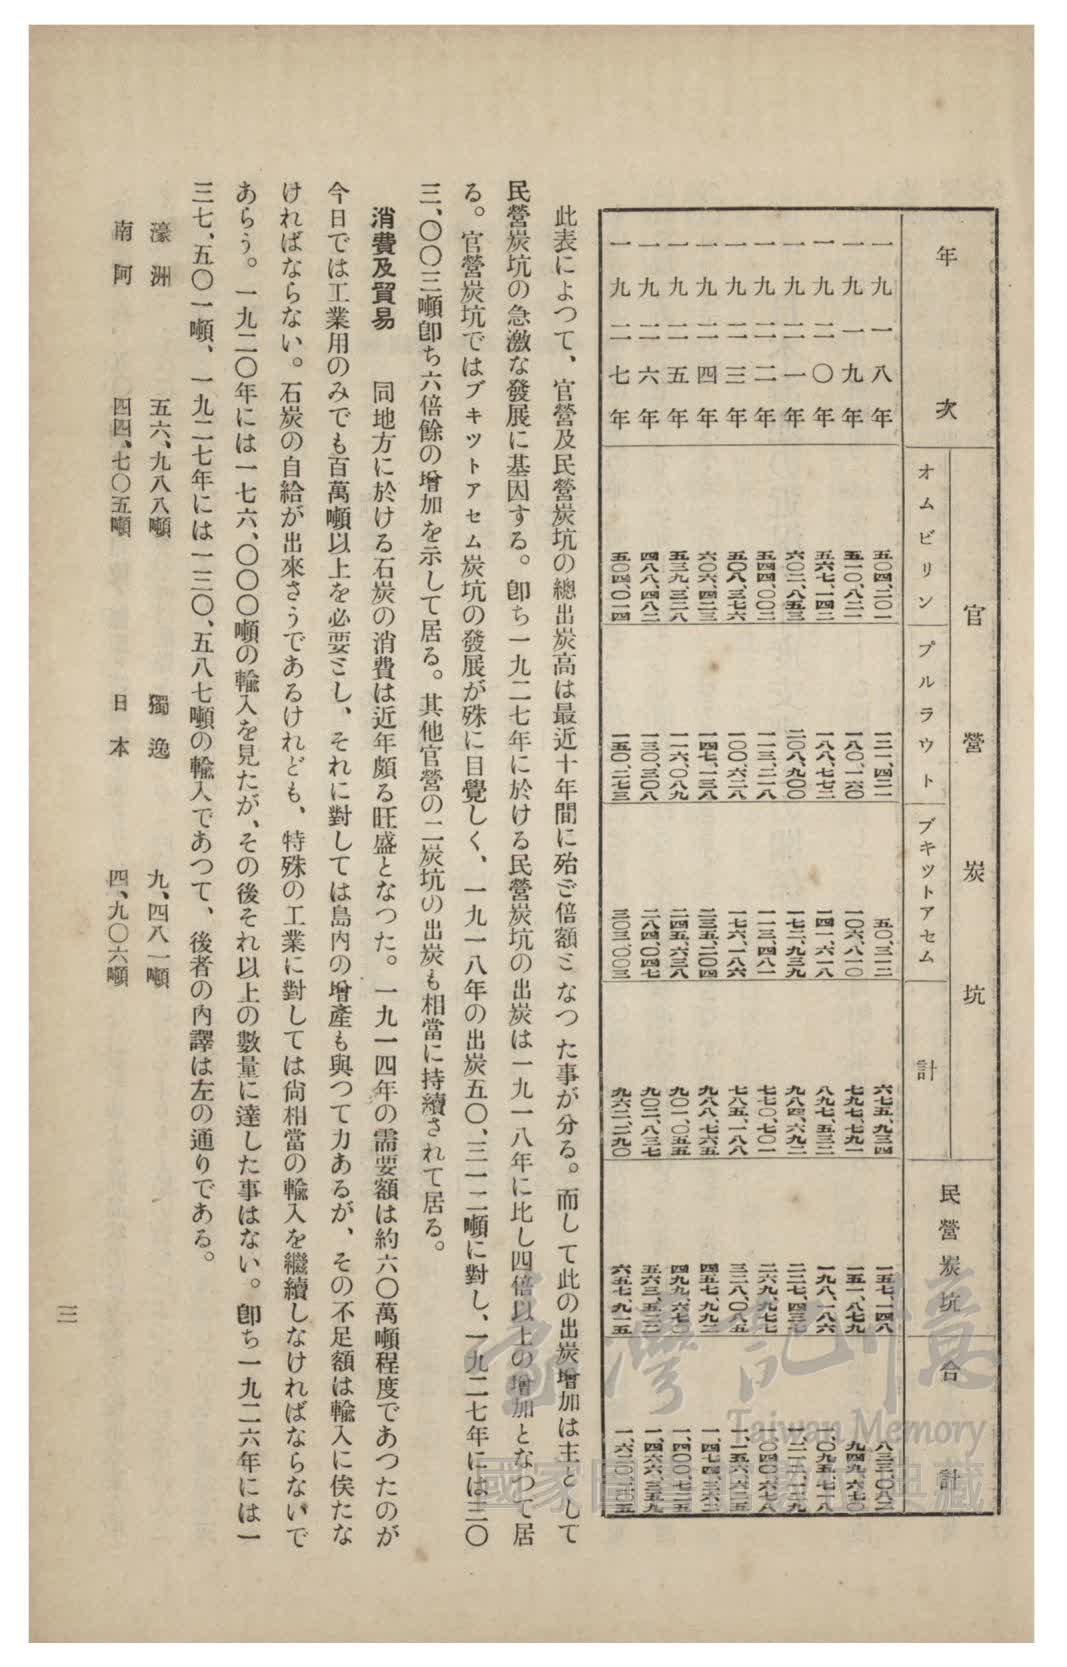 年次 官營炭坑 民營炭坑 合計
オムビリン プルラウト ブキツトアセム 計
一九一八年 五〇四、二〇一 一二一、四二一 五〇、三一二 六七五、九三四 一五七、一四八 八三三、〇八二
一九一九年 五一〇、八二一 一八〇、一六〇 一〇六、八一〇 七九七、七九一 一五一、八七九 九四九、六七〇
一九二〇年 五六七、一四二 一八八、七七二 一四一、六一八 八九七、五三二 一九八、一八六 一、〇九五、七一八
一九二一年 六〇二、八五三 二〇八、九〇〇 一七二、九三九 九八四、六九二 二二七、四三七 一、二一二、一二九
一九二二年 五四四、〇〇二 一一三、二一八 一一三、四八一 七七〇、七〇一 二六九、九七七 一、〇四〇、六七八
一九二三年 五〇八、三七六 一〇〇、六二八 一七六、一八六 七八五、一八八 三二八、〇八五 一、一五六、六二五
一九二四年 六〇六、四二三 一四七、一三八 二三五、二〇四 九八八、七六五 四五七、九九二 一、四七四、三六二
一九二五年 五三九、三二八 一一六、〇八九 二四五、六三八 九〇一、〇五五 四九九、六七〇 一、四〇〇、七二五
一九二六年 四八八、四八二 一三〇、三〇八 二八四、〇四七 九〇二、八三七 五六三、五二二 一、四六六、三五九
一九二七年 五〇四、〇一四 一五〇、二七三 三〇三、〇〇三 九六二、二九〇 六五七、九一五 一、六二〇、二〇五
此表によつて、官營及民營炭坑の總出炭高は最近十年間に殆ご倍額ミなつた事が分る。而して此の出炭增加は主として
民營炭坑の急激な發展に基因する。卽ち一九二七年に於ける民營炭坑の出炭は一九一八年に比し四倍以上の增加となつて居
る。官營炭坑ではブキツトアセム炭坑の發展が殊に目覺しく、一九一八年の出炭五〇、三一二噸に對し、一九二七年には三〇
三、〇〇三噸卽ち六倍餘の增加を示して居る。其他官營の二炭坑の出炭も相當に持續されて居る。
消費及貿易　同地方に於ける石炭の消費は近年頗る旺盛となつた。一九一四年の需要額は約六〇萬噸程度であつたのが
今日では工業用のみでも百萬噸以上を必要ミし、それに對しては島內の增產も與つて力あるが、その不足額は輸入に俟たな
ければならない。石炭の自給が出來さうであるけれども、特殊の工業に對しては尙相當の輸入を繼續しなければならないで
あらう。一九二〇年には一七六、〇〇〇噸の輸入を見たが、その後それ以上の數量に達した事はない。卽ち一九二六年には一
三七、五〇一噸、一九二七年には一三〇、五八七噸の輸入であつて、後者の內譯は左の通りである。
濠洲 五六、九八八噸 獨逸 九、四八一噸
南阿 四四、七〇五噸 日本 四、九〇六噸
三
臺灣記憶
Taiwan Memory
國家圖書館數位典藏